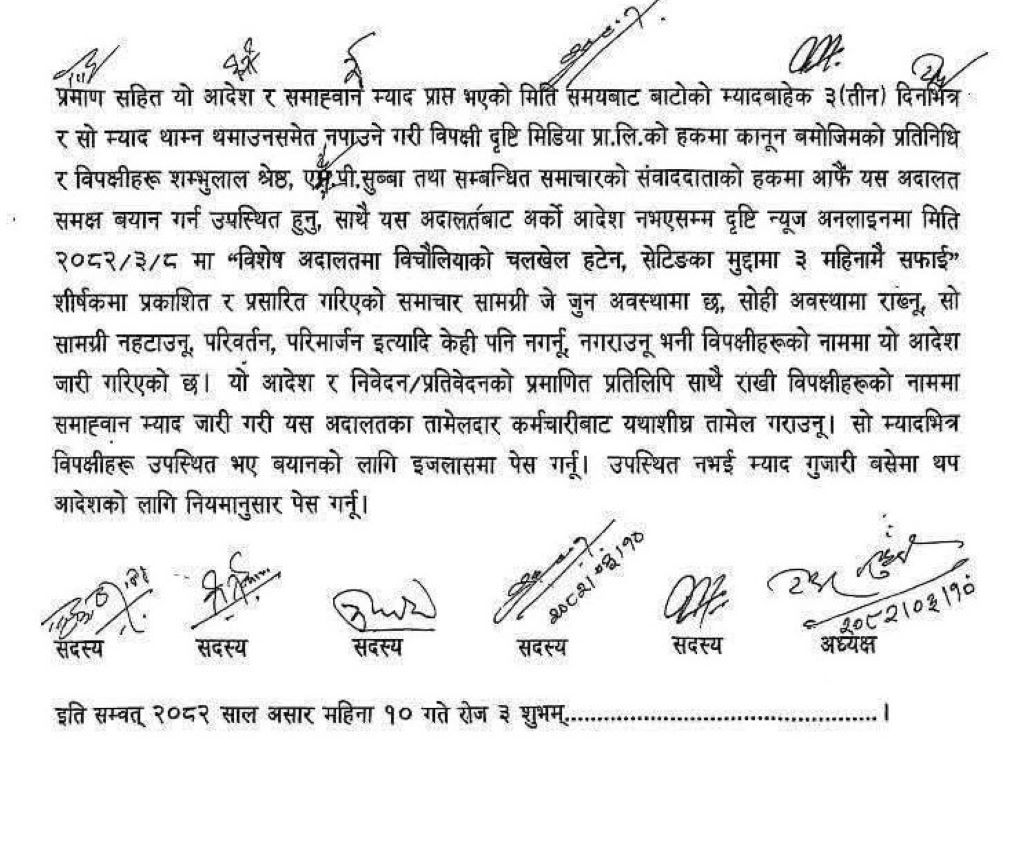 प्रमाण सहित यो आदेश र समाह्वान म्याद प्राप्त भएको मिति समयबाट बाटोको म्यादबाहेक ३(तीन) दिनभित्र
र सो म्याद थाम्न थमाउनसमेत नपाउने गरी विपक्षी दृष्टि मिडिया प्रा.लि.को हकमा कानून बमोजिमको प्रतिनिधि
र विपक्षीहरू शम्भुलाल श्रेष्ठ, एम.पी.सुब्बा तथा सम्बन्धित समाचारको संवाददाताको हकमा आफैं यस अदालत
समक्ष बयान गर्न उपस्थित हुनु, साथै यस अदालतबाट अर्को आदेश नभएसम्म दृष्टि न्यूज अनलाइनमा मिति
२०८२/३/८ मा “विशेष अदालतमा विचौलियाको चलखेल हटेन, सेटिङका मुद्दामा ३ महिनामै सफाई”
शीर्षकमा प्रकाशित र प्रसारित गरिएको समाचार सामग्री जे जुन अवस्थामा छ, सोही अवस्थामा राख्नू, सो
सामग्री नहटाउनू, परिवर्तन, परिमार्जन इत्यादि केही पनि नगर्नू, नगराउनू भनी विपक्षीहरूको नाममा यो आदेश
जारी गरिएको छ। यो आदेश र निवेदन/प्रतिवेदनको प्रमाणित प्रतिलिपि साथै राखी विपक्षीहरूको नाममा
समाह्वान म्याद जारी गरी यस अदालतका तामेलदार कर्मचारीबाट यथाशीघ्र तामेल गराउनू। सो म्यादभित्र
विपक्षीहरू उपस्थित भए बयानको लागि इजलासमा पेस गर्नू। उपस्थित नभई म्याद गुजारी बसेमा थप
आदेशको लागि नियमानुसार पेस गर्नू।
२०८२।०३।१० २०८२।०३।१०
सदस्य सदस्य सदस्य सदस्य सदस्य अध्यक्ष
इति सम्वत् २०८२ साल असार महिना १० गते रोज ३ शुभम्...............................................।